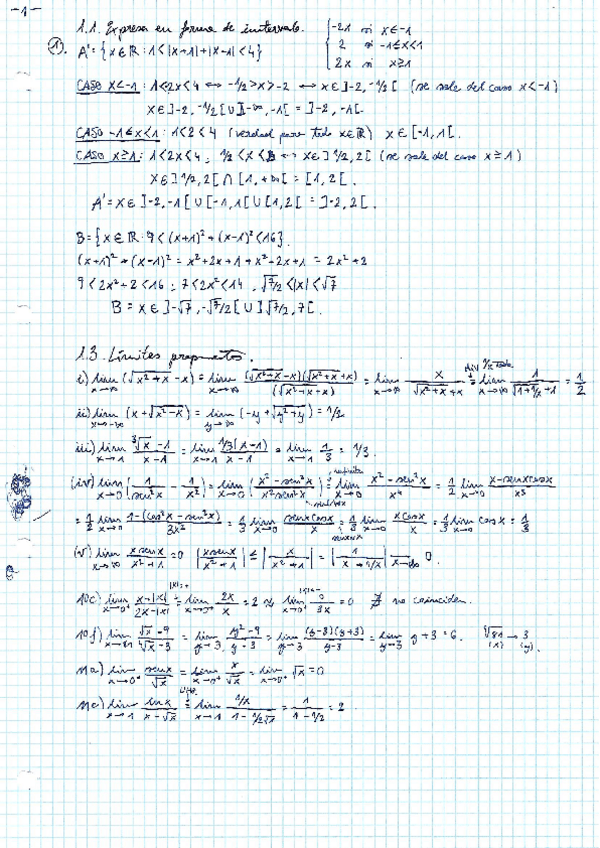 -1-
1.1. Expresa en forma de intervalo.
{ -2x si x<-1
2 si -1≤x<1
2x si x≥1
①. A'={x∈ℝ: 1<|x+1|+|x-1|<4}
CASO x<-1: 1<-2x<4 ↔ -1/2>x>-2 ↔ x∈]-2,-1/2[ (se sale del caso x<-1)
x∈]-2,-1/2[ U ]-∞,-1[ = ]-2,-1[.
CASO -1≤x<1: 1<2<4 (verdad para todo x∈ℝ) x∈[-1,1[.
CASO x≥1: 1<2x<4; 1/2<x<2 ↔ x∈]1/2,2[ (se sale del caso x≥1)
x∈]1/2,2[ ∩ [1,+∞[ = [1,2[.
A'=x∈]-2,-1[ U [-1,1[ U [1,2[ = ]-2,2[.
B={x∈ℝ: 9<(x+1)²+(x-1)²<16}.
(x+1)²+(x-1)² = x²+2x+1+x²-2x+1 = 2x²+2
9<2x²+2<16; 7<2x²<14; √7/2<|x|<√7
B = x∈]-√7,-√7/2[ U ]√7/2,7[.
1.3. Límites propuestos.
i) lim x→∞ (√x²+x - x) = lim x→∞ (√x²+x - x)(√x²+x + x) / (√x²+x + x) = lim x→∞ x / √x²+x + x = lim x→∞ 1 / √1+1/x + 1 = 1/2
ii) lim x→-∞ (x+√x²-x) = lim y→∞ (-y+√y²+y) = 1/2
iii) lim x→1 ∛x -1 / x-1 = lim x→1 1/3(x-1) / x-1 = lim x→1 1/3 = 1/3.
(iv) lim x→0 (1/sen²x - 1/x²) = lim x→0 (x²-sen²x / x²sen²x) = lim x→0 x²-sen²x / x⁴ = 1/2 lim x→0 x-senxcosx / x³
= 1/2 lim x→0 1-(cos²x-sen²x) / 3x² = 1/3 lim x→0 senxcosx / x = 1/3 lim x→0 xcosx / x = 1/3 lim x→0 cosx = 1/3
(v) lim x→∞ xsenx / x²+1 = 0 |xsenx / x²+1| ≤ |x / x²+1| = |1 / x+1/x| x→∞ 0.
10c) lim x→0⁺ x+|x| / 2x-|x| = lim x→0⁺ 2x / x = 2 lim x→0⁻ 0 / 3x = 0 ∄ no coinciden.
10f) lim x→81 √x -9 / ∜x -3 = lim y→3 y²-9 / y-3 = lim y→3 (y-3)(y+3) / y-3 = lim y→3 y+3 = 6. ∜81 → 3 (x) (y).
11a) lim x→0⁺ senx / √x = lim x→0⁺ x / √x = lim x→0⁺ √x = 0
11c) lim x→1 lnx / x-√x = lim x→1 1/x / 1-1/2√x = 1 / 1-1/2 = 2